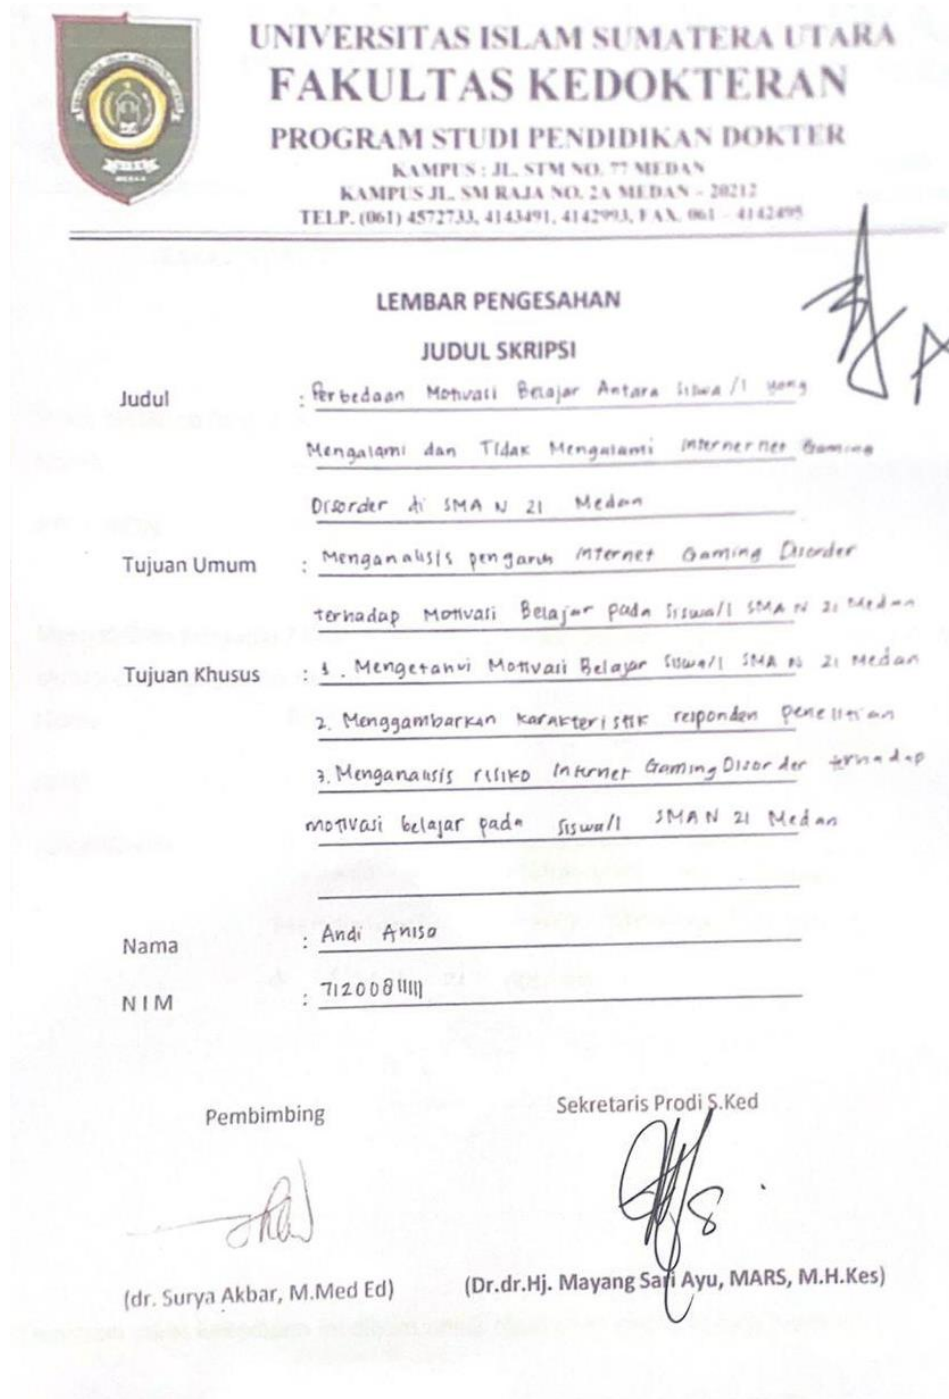 UNIVERSITAS ISLAM SUMATERA UTARA
FAKULTAS KEDOKTERAN
PROGRAM STUDI PENDIDIKAN DOKTER
KAMPUS : JL. STM NO. 77 MEDAN
KAMPUS JL. SM RAJA NO. 2A MEDAN - 20212
TELP. (061) 4572733, 4143491, 4142993, FAX. 061 - 4142495
LEMBAR PENGESAHAN
JUDUL SKRIPSI
Judul : Perbedaan Motivasi Belajar Antara Siswa/I yang
Mengalami dan Tidak Mengalami Internernet Gaming
Disorder di SMA N 21 Medan
Tujuan Umum : Menganalisis pengaruh Internet Gaming Disorder
terhadap Motivasi Belajar pada Siswa/I SMA N 21 Medan
Tujuan Khusus : 1. Mengetahui Motivasi Belajar Siswa/I SMA N 21 Medan
2. Menggambarkan Karakteristik responden penelitian
3. Menganalisis risiko Internet Gaming Disorder terhadap
motivasi belajar pada Siswa/I SMAN 21 Medan
Nama : Andi Anisa
NIM : 71200811111
Pembimbing Sekretaris Prodi S.Ked
(dr. Surya Akbar, M.Med Ed) (Dr.dr.Hj. Mayang Sari Ayu, MARS, M.H.Kes)